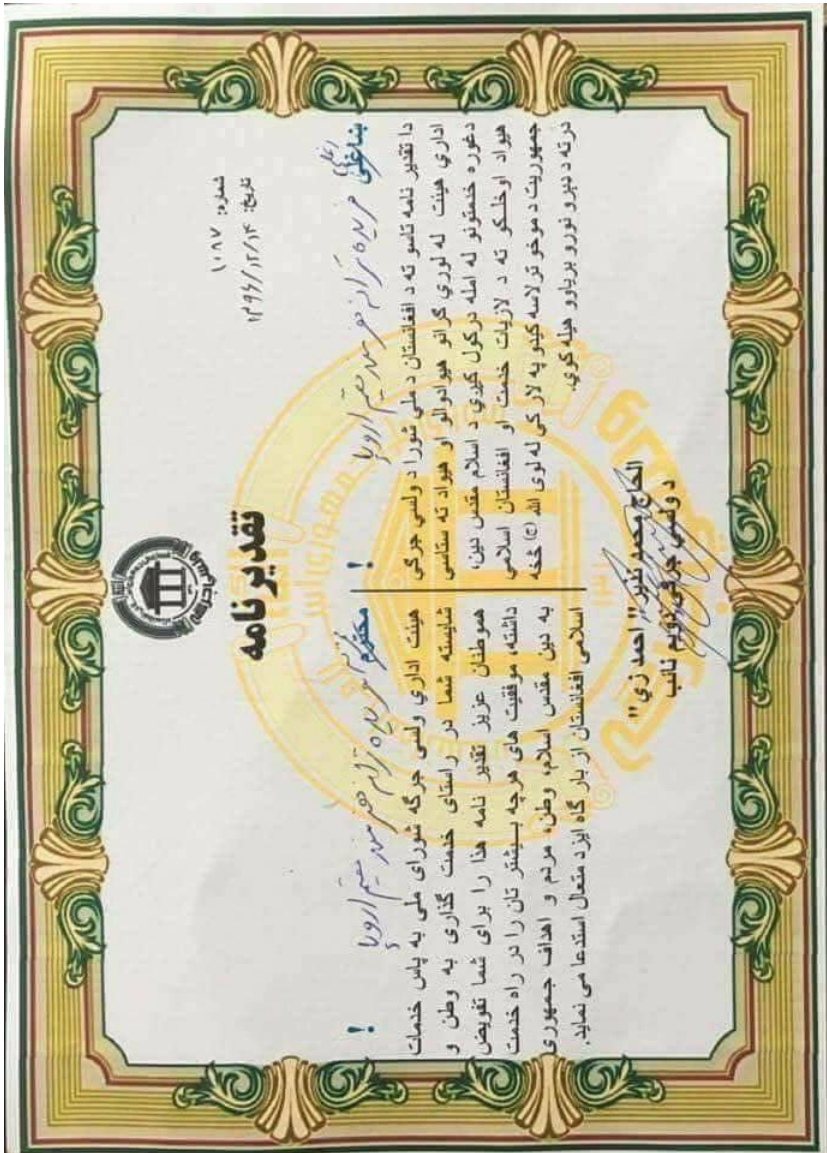 تقدیر نامه
شماره: ۱۰۸۷
تاریخ: ۱۳۹۶/۱۲/۱۴
ښاغلی فریده ترانه هنرمند مقیم اروپا !
دا تقدیر نامه تاسو ته د افغانستان د ملي شورا د ولسي جرگي
اداري هیئت له لوري گرانو هیوادوالو او هیواد ته ستاسي
دغوره خدمتونو له امله درکول کیږي د اسلام مقدس دین،
هیواد اوخلکو ته د لازیات خدمت او افغانستان اسلامي
جمهوریت د موخو تر لاسه کیدو په لار کي له لوی الله (ج) څخه
درته د ډېرو نورو بریاوو هیله کوي.
محترم فریده ترانه هنرمند مقیم اروپا !
هیئت اداري ولسی جرگه شورای ملی به پاس خدمات
شایسته شما در راستای خدمت گذاری به وطن و
هموطنان عزیز تقدیر نامه هذا را برای شما تفویض
داشته، موفقیت های هرچه بیشتر تان را در راه خدمت
به دین مقدس اسلام، وطن، مردم و اهداف جمهوری
اسلامی افغانستان از بار گاه ایزد متعال استدعا می نماید.
الحاج محمد نذیر "احمد زي"
د ولسي جرگی دویم نائب